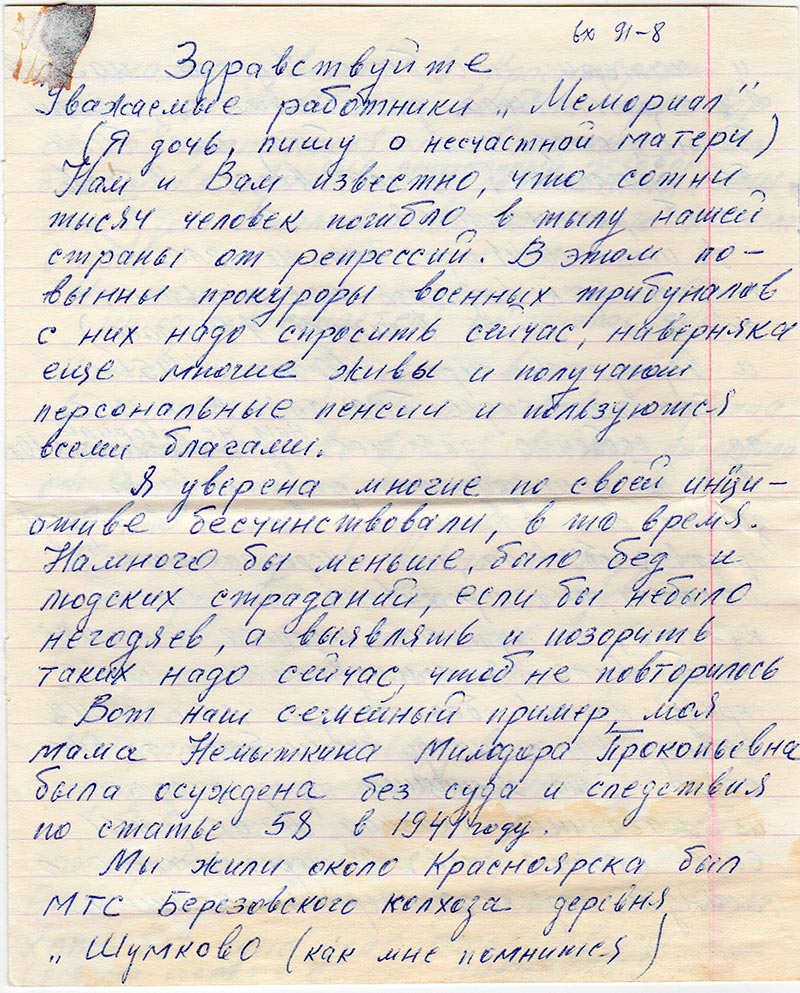 вх 91-8
Здравствуйте
Уважаемые работники „Мемориал"
(Я дочь, пишу о несчастной матери)
Нам и Вам известно, что сотни
тысяч человек погибло в тылу нашей
страны от репрессий. В этом по-
вынны прокуроры военных трибуналов
с них надо спросить сейчас, наверняка
еще многие живы и получают
персональные пенсии и пользуются
всеми благами.
Я уверена многие по своей инци-
ативе бесчинствовали, в то время.
Намного бы меньше, было бед и
людских страданий, если бы небыло
негодяев, а выявлять и позорить
таких надо сейчас, чтоб не повторилось
Вот наш семейный пример, моя
мама Немыткина Милодора Прокопьевна
была осуждена без суда и следствия
по статье 58 в 1941 году.
Мы жили около Красноярска был
МТС Березовского колхоза деревня
„Шумково (как мне помнится)